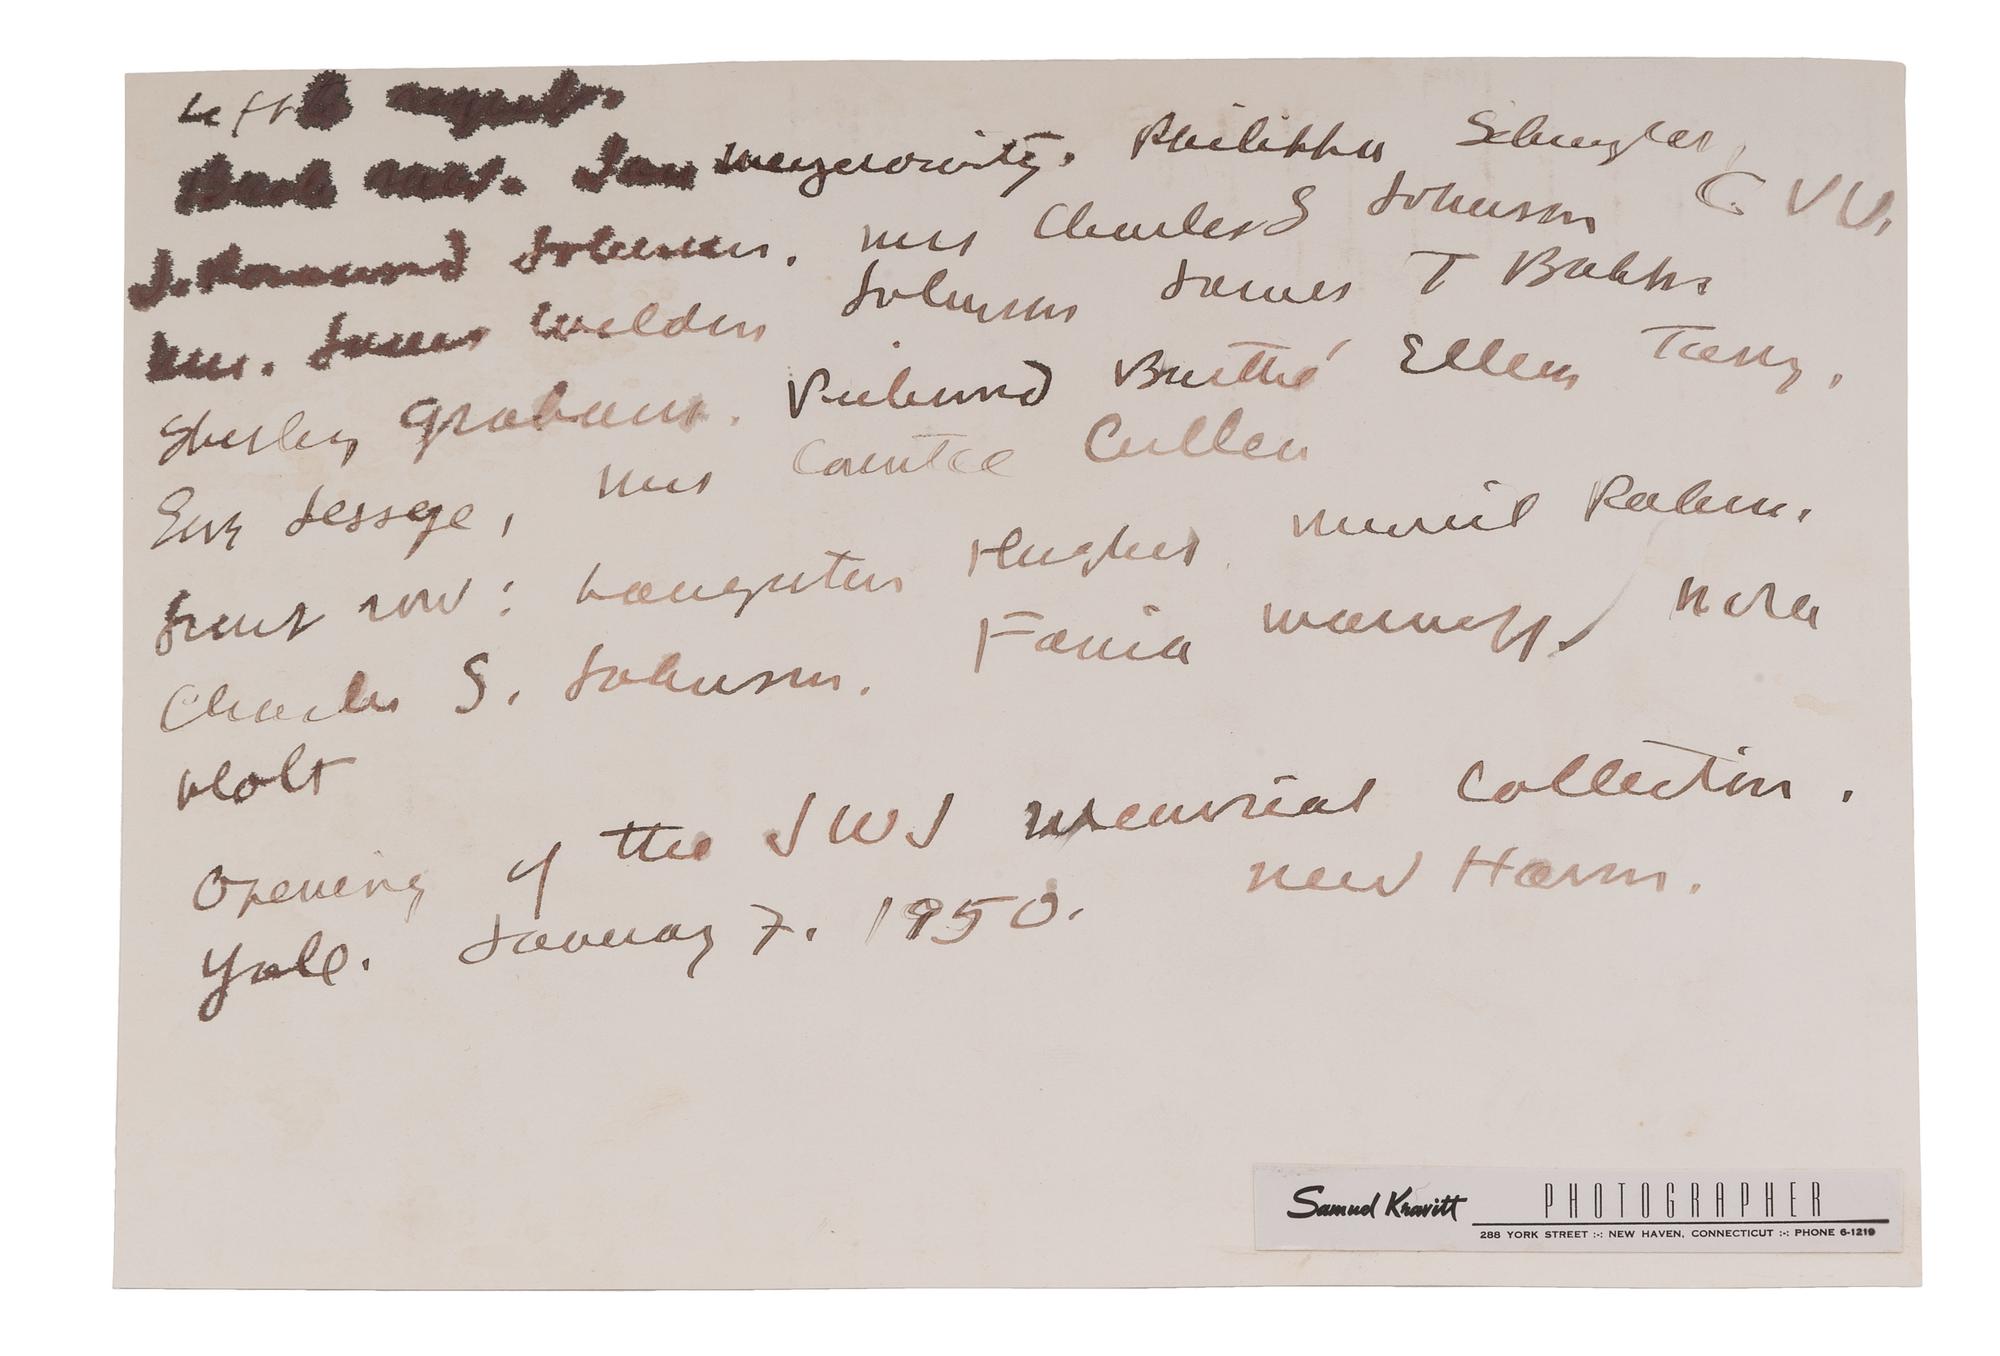 Left to right.
Back row. Jan Meyerowitz. Philippa Schuyler,
J. Rosamond Johnson. Mrs Charles S Johnson C V V.
Mrs. James Weldon Johnson James T Babb.
Shirley Graham. Richmond Barthé Ellen Tarry,
Eva Jessye, Mrs Countee Cullen
Front row: Langston Hughes Muriel Rahn.
Charles S. Johnson. Fania Marinoff, Nora
Holt
Opening of the JWJ Memorial Collection.
Yale. January 7. 1950. New Haven.
Samuel Kravitt PHOTOGRAPHER
288 YORK STREET :-: NEW HAVEN, CONNECTICUT :-: PHONE 6-1219